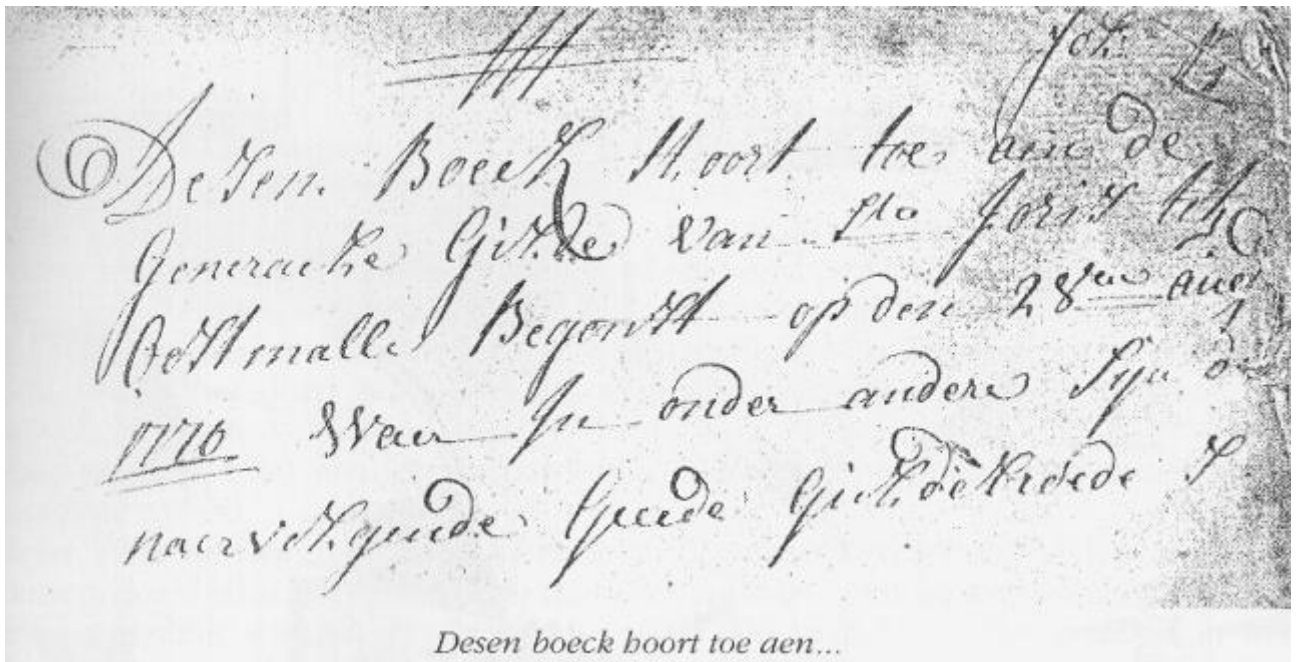 fol: 1
Desen Boeck Hoort toe aen de
Generaele Gilde van Sto Joris tot
Oostmalle Begonst op den 28en
1770 Waer In onder andere Syn de
naervolgende Goede Gilde
Desen boeck boort toe aen...